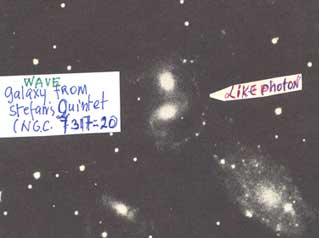 WAVE
galaxy from
stefan's Quintet
(N.G.C. 7317=20
LIKE photon